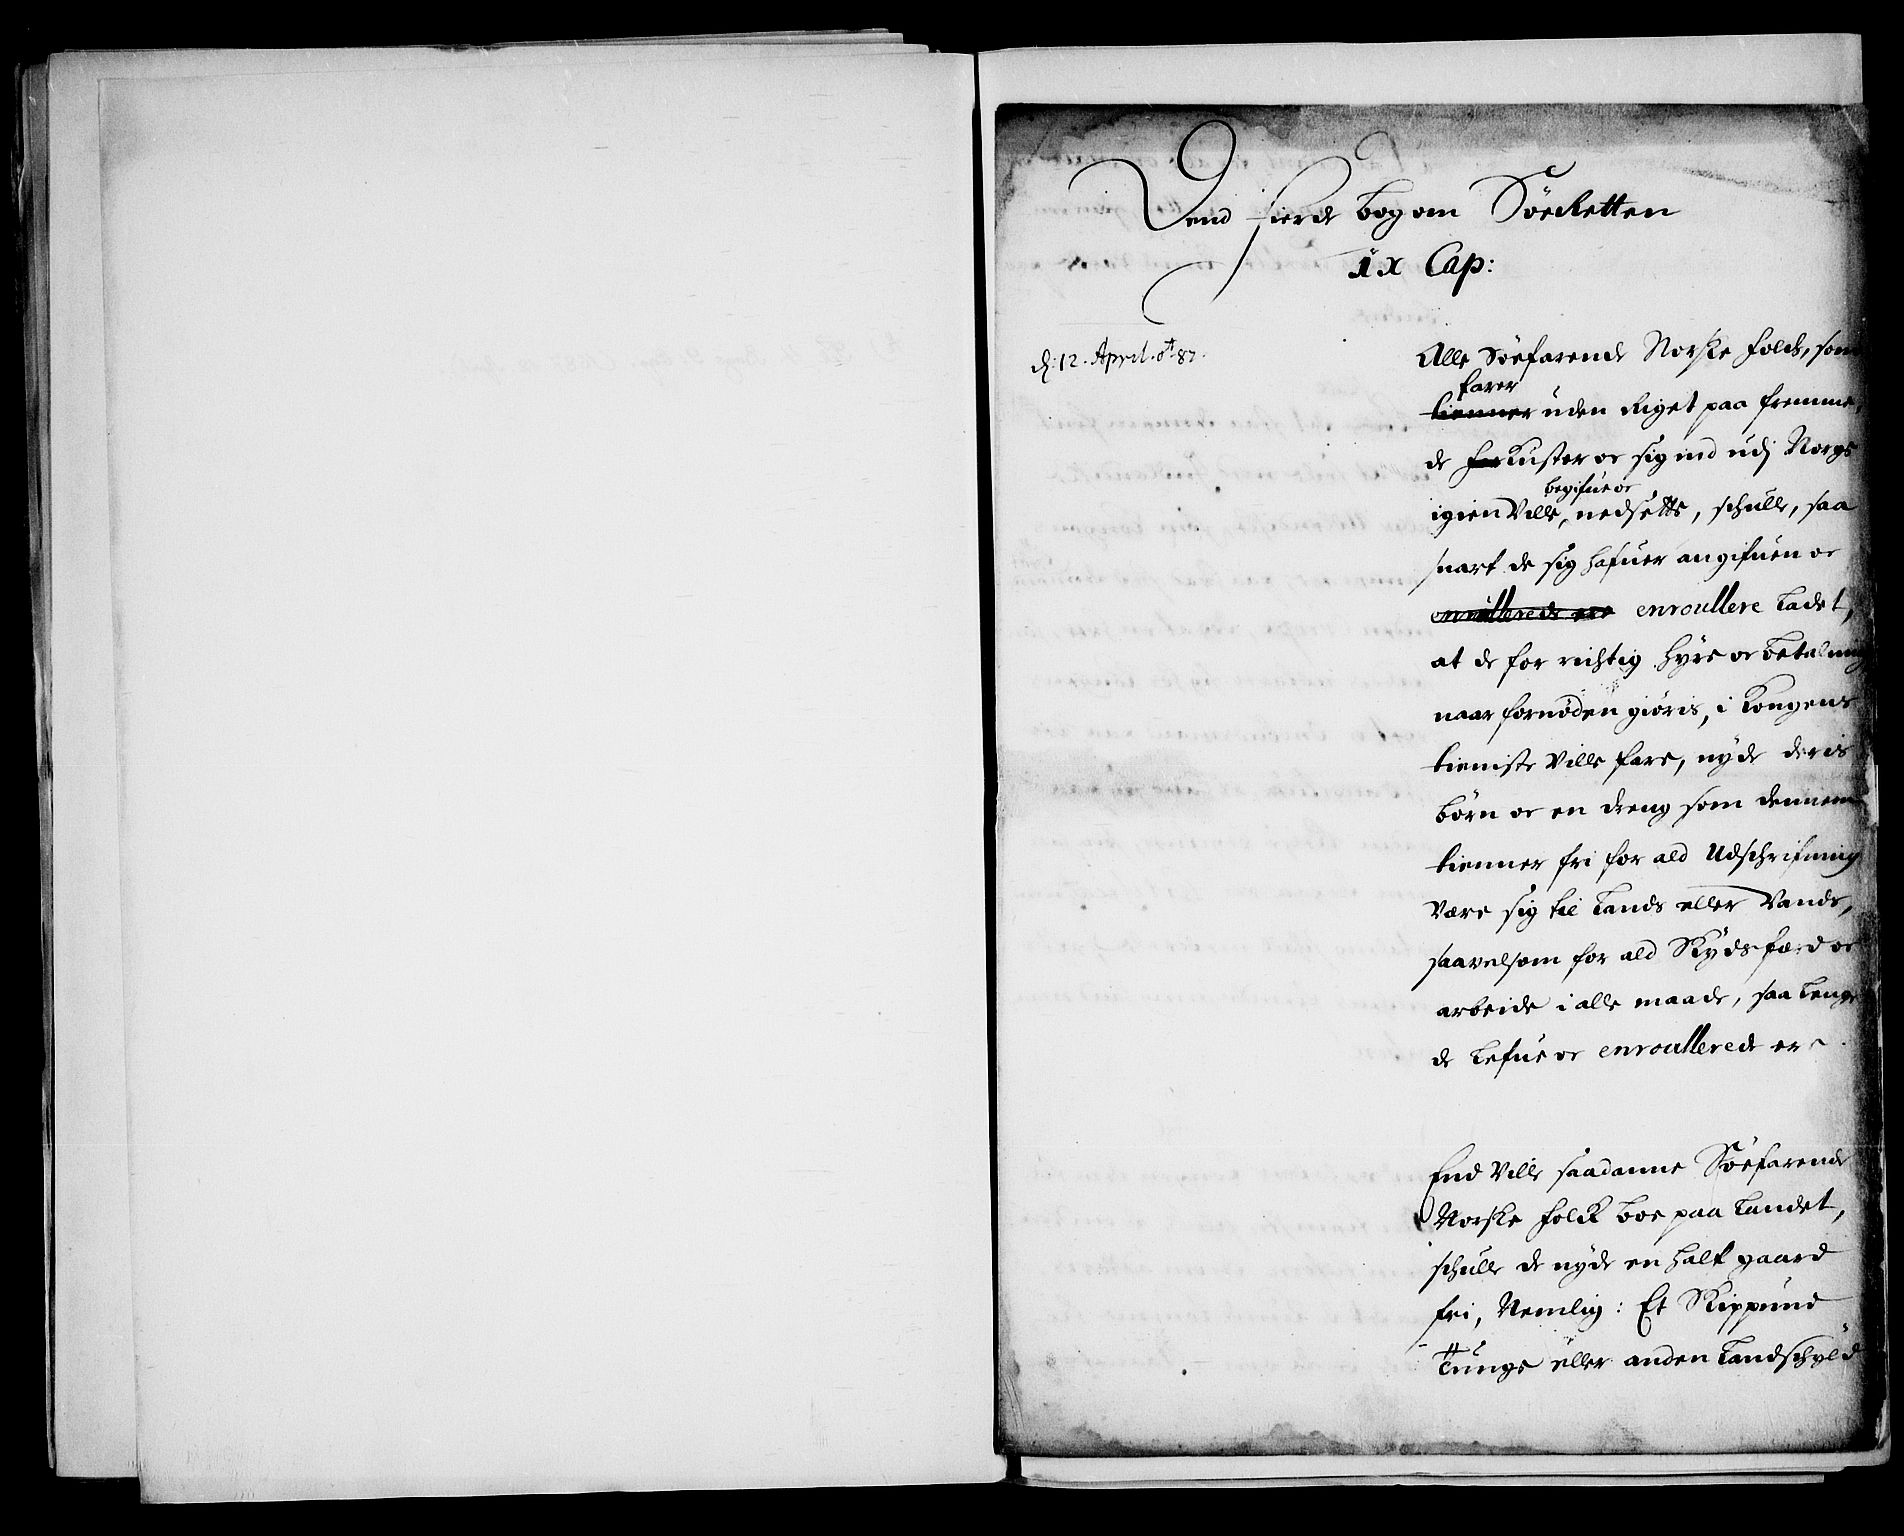 Dend fierde bog om Söe Retten
IX Cap:
d: 12. April. Ao 87.
Alle Söefarende Norske folck, som
farer
tienner uden Riget paa fremme¬
de for Kuster oc sig ind udj Norge
begifue oc
igien Ville, nedsette, schulle, saa
snart de sig hafuer angifuen oc
enrullerede ere enroullere ladet,
at de for richtig hyre oc betalning
naar fornöden giöris, i Kongens
tieniste Ville fare, nyde deris
börn oc en dreng som dennem
tienner fri for ald Udschrifning
Være sig til Lands eller Vands,
saavelsom for ald Skydsferd oc
arbeide i alle maade, saa lenge
de lefue oc enroullerede er
End Ville saadanne Söefarende
Norske folck boe paa Landet,
schulle de nyde en half gaard
fri, Nemlig: Et Skippund
Tunge eller anden Landschyld